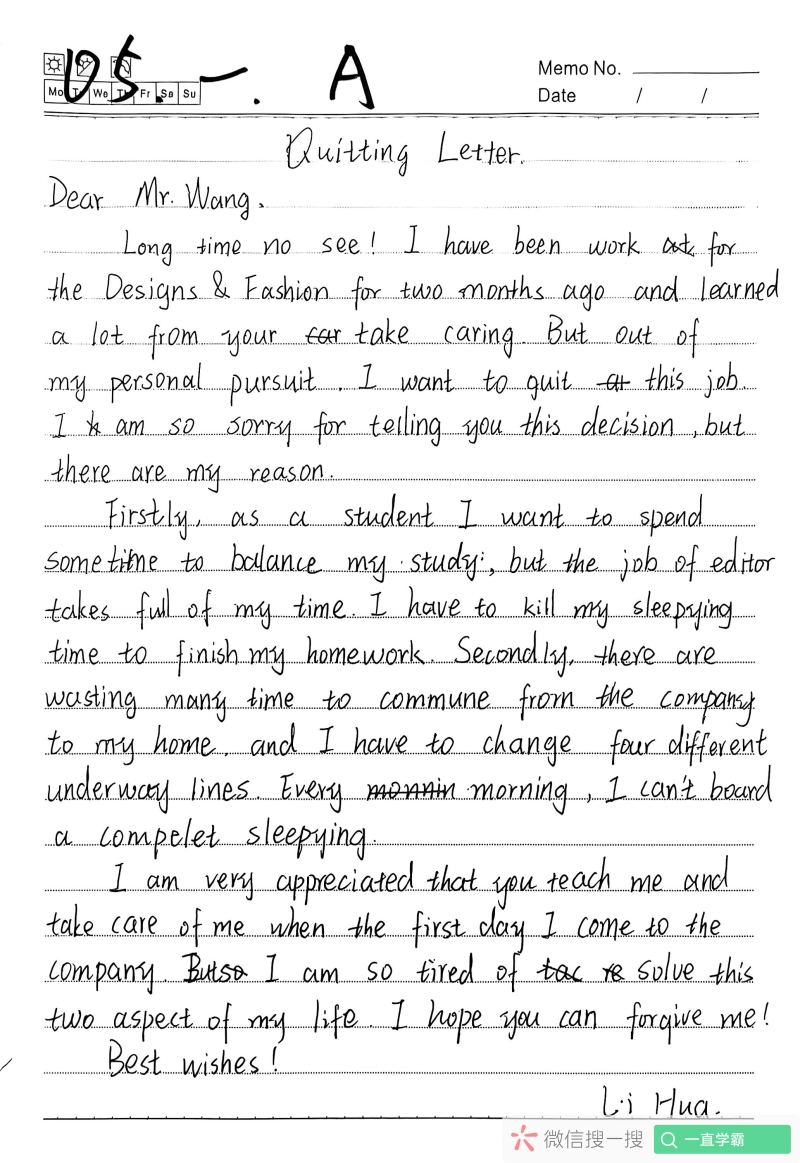 05. 一. A
Memo No.
Mo Tu We Th Fr Sa Su
Date / /
Quitting Letter.
Dear Mr. Wang,
Long time no see! I have been work for
the Designs & Fashion for two months ago and learned
a lot from your take caring. But out of
my personal pursuit, I want to quit this job.
I am so sorry for telling you this decision, but
there are my reason.
Firstly, as a student I want to spend
sometime to balance my study, but the job of editor
takes full of my time. I have to kill my sleepying
time to finish my homework. Secondly, there are
wasting many time to commune from the company
to my home, and I have to change four different
underway lines. Every morning, I can't board
a compelet sleepying.
I am very appreciated that you teach me and
take care of me when the first day I come to the
company. I am so tired of solve this
two aspect of my life. I hope you can forgive me!
Best wishes!
Li Hua.
微信搜一搜 一直学霸